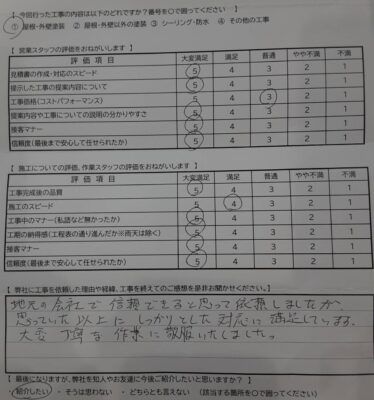 今回行った工事の内容は以下のどれですか？番号を〇で囲ってください
① 屋根・外壁塗装　② 屋根・外壁以外の塗装　③ シーリング・防水　④ その他の工事
【 営業スタッフの評価をおねがいします 】
評 価 項 目 大変満足 満足 普通 やや不満 不満
見積書の作成・対応のスピード 5 4 3 2 1
提示した工事の提案内容について 5 4 3 2 1
工事価格(コストパフォーマンス) 5 4 3 2 1
提案内容や工事についての説明の分かりやすさ 5 4 3 2 1
接客マナー 5 4 3 2 1
信頼度(最後まで安心して任せられたか) 5 4 3 2 1
【 施工についての評価、作業スタッフの評価をおねがいします 】
評 価 項 目 大変満足 満足 普通 やや不満 不満
工事完成後の品質 5 4 3 2 1
施工のスピード 5 4 3 2 1
工事中のマナー(私語など無かったか) 5 4 3 2 1
工期の納得感(工程表の通り進んだか※雨天は除く) 5 4 3 2 1
接客マナー 5 4 3 2 1
信頼度(最後まで安心して任せられたか) 5 4 3 2 1
【 弊社に工事を依頼した理由や経緯、工事を終えてのご感想を是非お聞かせください。】
地元の会社で信頼できると思って依頼しましたが、
思っていた以上にしっかりとした対応に満足しています。
大変丁寧な作業に敬服いたしました。
【 最後になりますが、弊社を知人やお友達に今後ご紹介したいと思いますか？ 】
紹介したい ・ そうは思わない ・ どちらとも言えない （該当する箇所を〇で囲ってください）